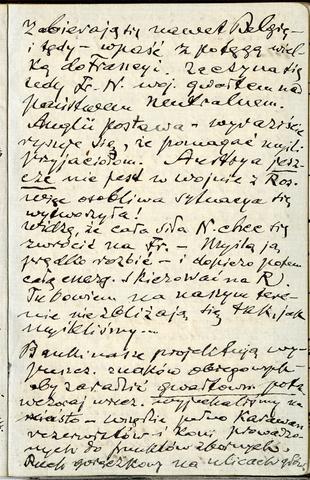 Zabierają się nawet Belgię –
i tędy – wpaść z potęgą wiel-
ką do Francyi. Zaczyna się
tedy Fr. N. woj. gwałtem na
państwem neutralnem.
Anglii postawa – wyraziście
rysuje się, że pomagać myśli
przyjaciołom. Austrya jesz-
cze nie jest w wojnie z Ros-
osobliwa sytuacya się
wytworzyła!
Widzę, że cała siła N. chce się
zwrócić na Fr. – Myślą ją
prędko rozbić – i dopiero potem
całą energ. skierować na R.
Tu bowiem na naszym tere-
nie nie zbliżają się tak, jak
myśliliśmy...
Banki nasze projektują wy-
puszcz. znaków obiegowych –
aby zaradzić gwałtown. potrz.
Wczoraj wiecz. wyjechaliśmy na
miasto – wszędzie pełno karawan
rezerwistów i koni prowadzo-
nych do punktów zbornych.
Ruch gorączkowy na ulicach